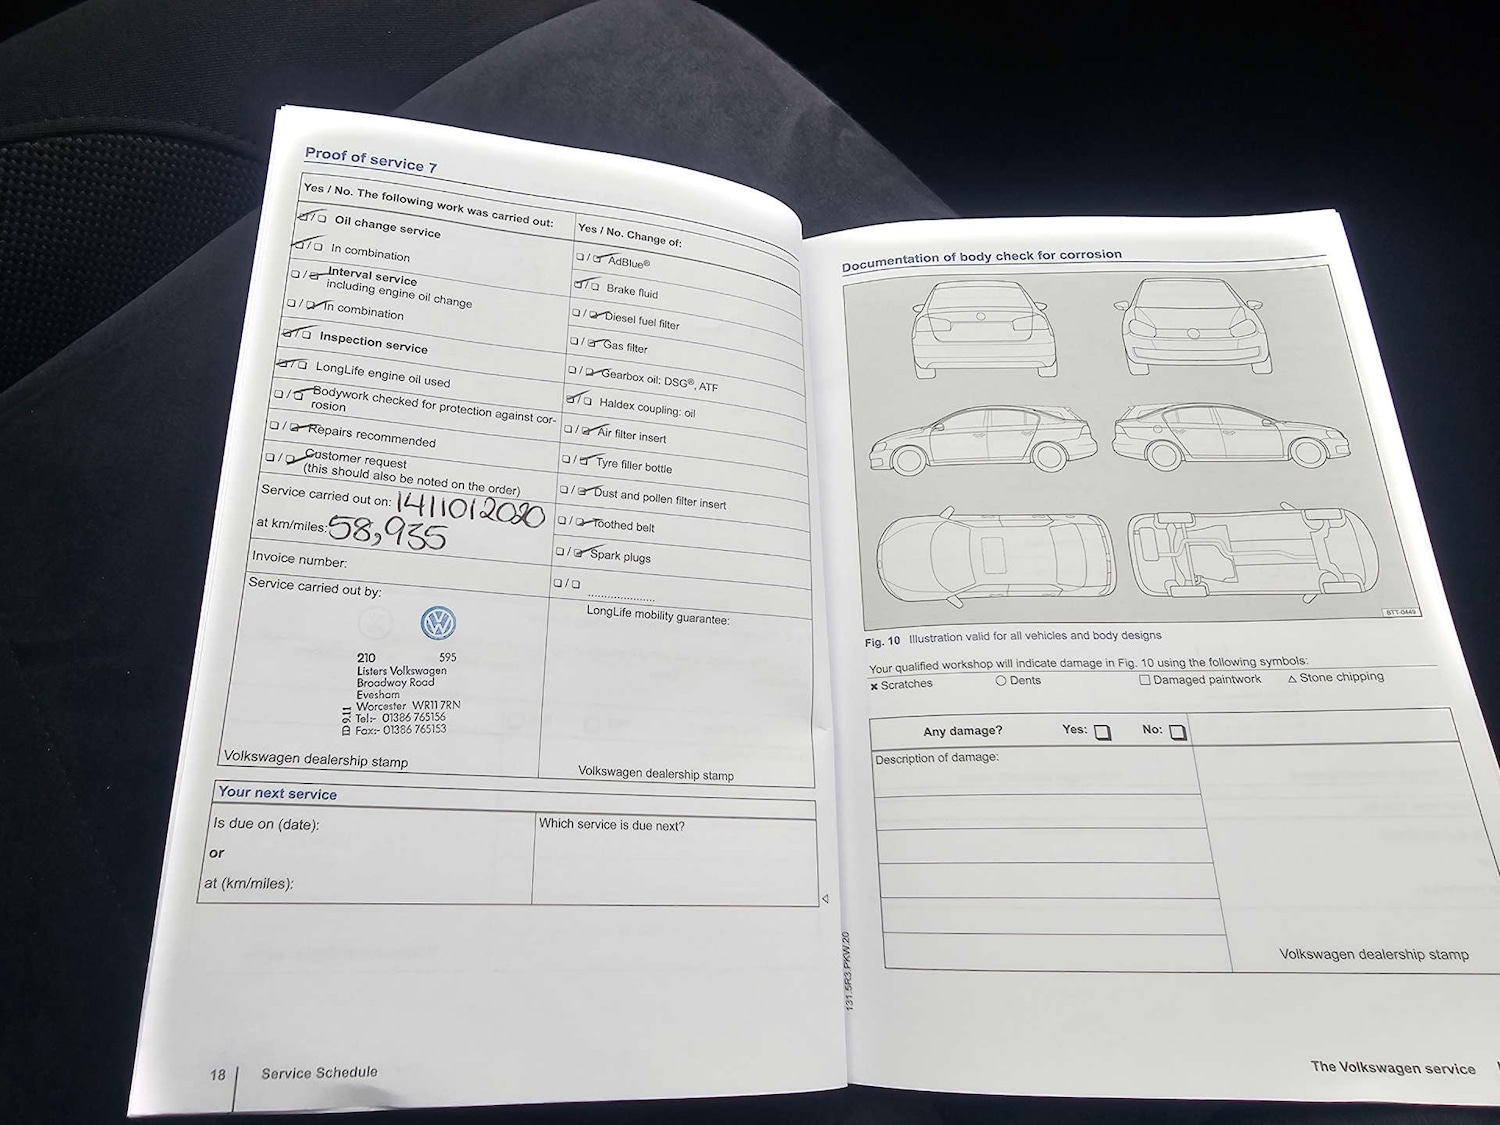 Proof of service 7
Yes / No. The following work was carried out:
Oil change service
In combination
Interval service
including engine oil change
In combination
Inspection service
LongLife engine oil used
Bodywork checked for protection against cor-
rosion
Repairs recommended
Customer request
(this should also be noted on the order)
Service carried out on: 14/10/2020
at km/miles: 58,935
Invoice number:
Service carried out by:
210 595
Listers Volkswagen
Broadway Road
Evesham
Worcester WR11 7RN
Tel:- 01386 765156
Fax:- 01386 765153
D 9.11
Volkswagen dealership stamp
Yes / No. Change of:
AdBlue®
Brake fluid
Diesel fuel filter
Gas filter
Gearbox oil: DSG®, ATF
Haldex coupling: oil
Air filter insert
Tyre filler bottle
Dust and pollen filter insert
Toothed belt
Spark plugs
LongLife mobility guarantee:
Volkswagen dealership stamp
Your next service
Is due on (date):
or
at (km/miles):
Which service is due next?
18 Service Schedule
131.5R3.PKW.20
Documentation of body check for corrosion
BTT-0449
Fig. 10 Illustration valid for all vehicles and body designs
Your qualified workshop will indicate damage in Fig. 10 using the following symbols:
Scratches Dents Damaged paintwork Stone chipping
Any damage? Yes: No:
Description of damage:
Volkswagen dealership stamp
The Volkswagen service